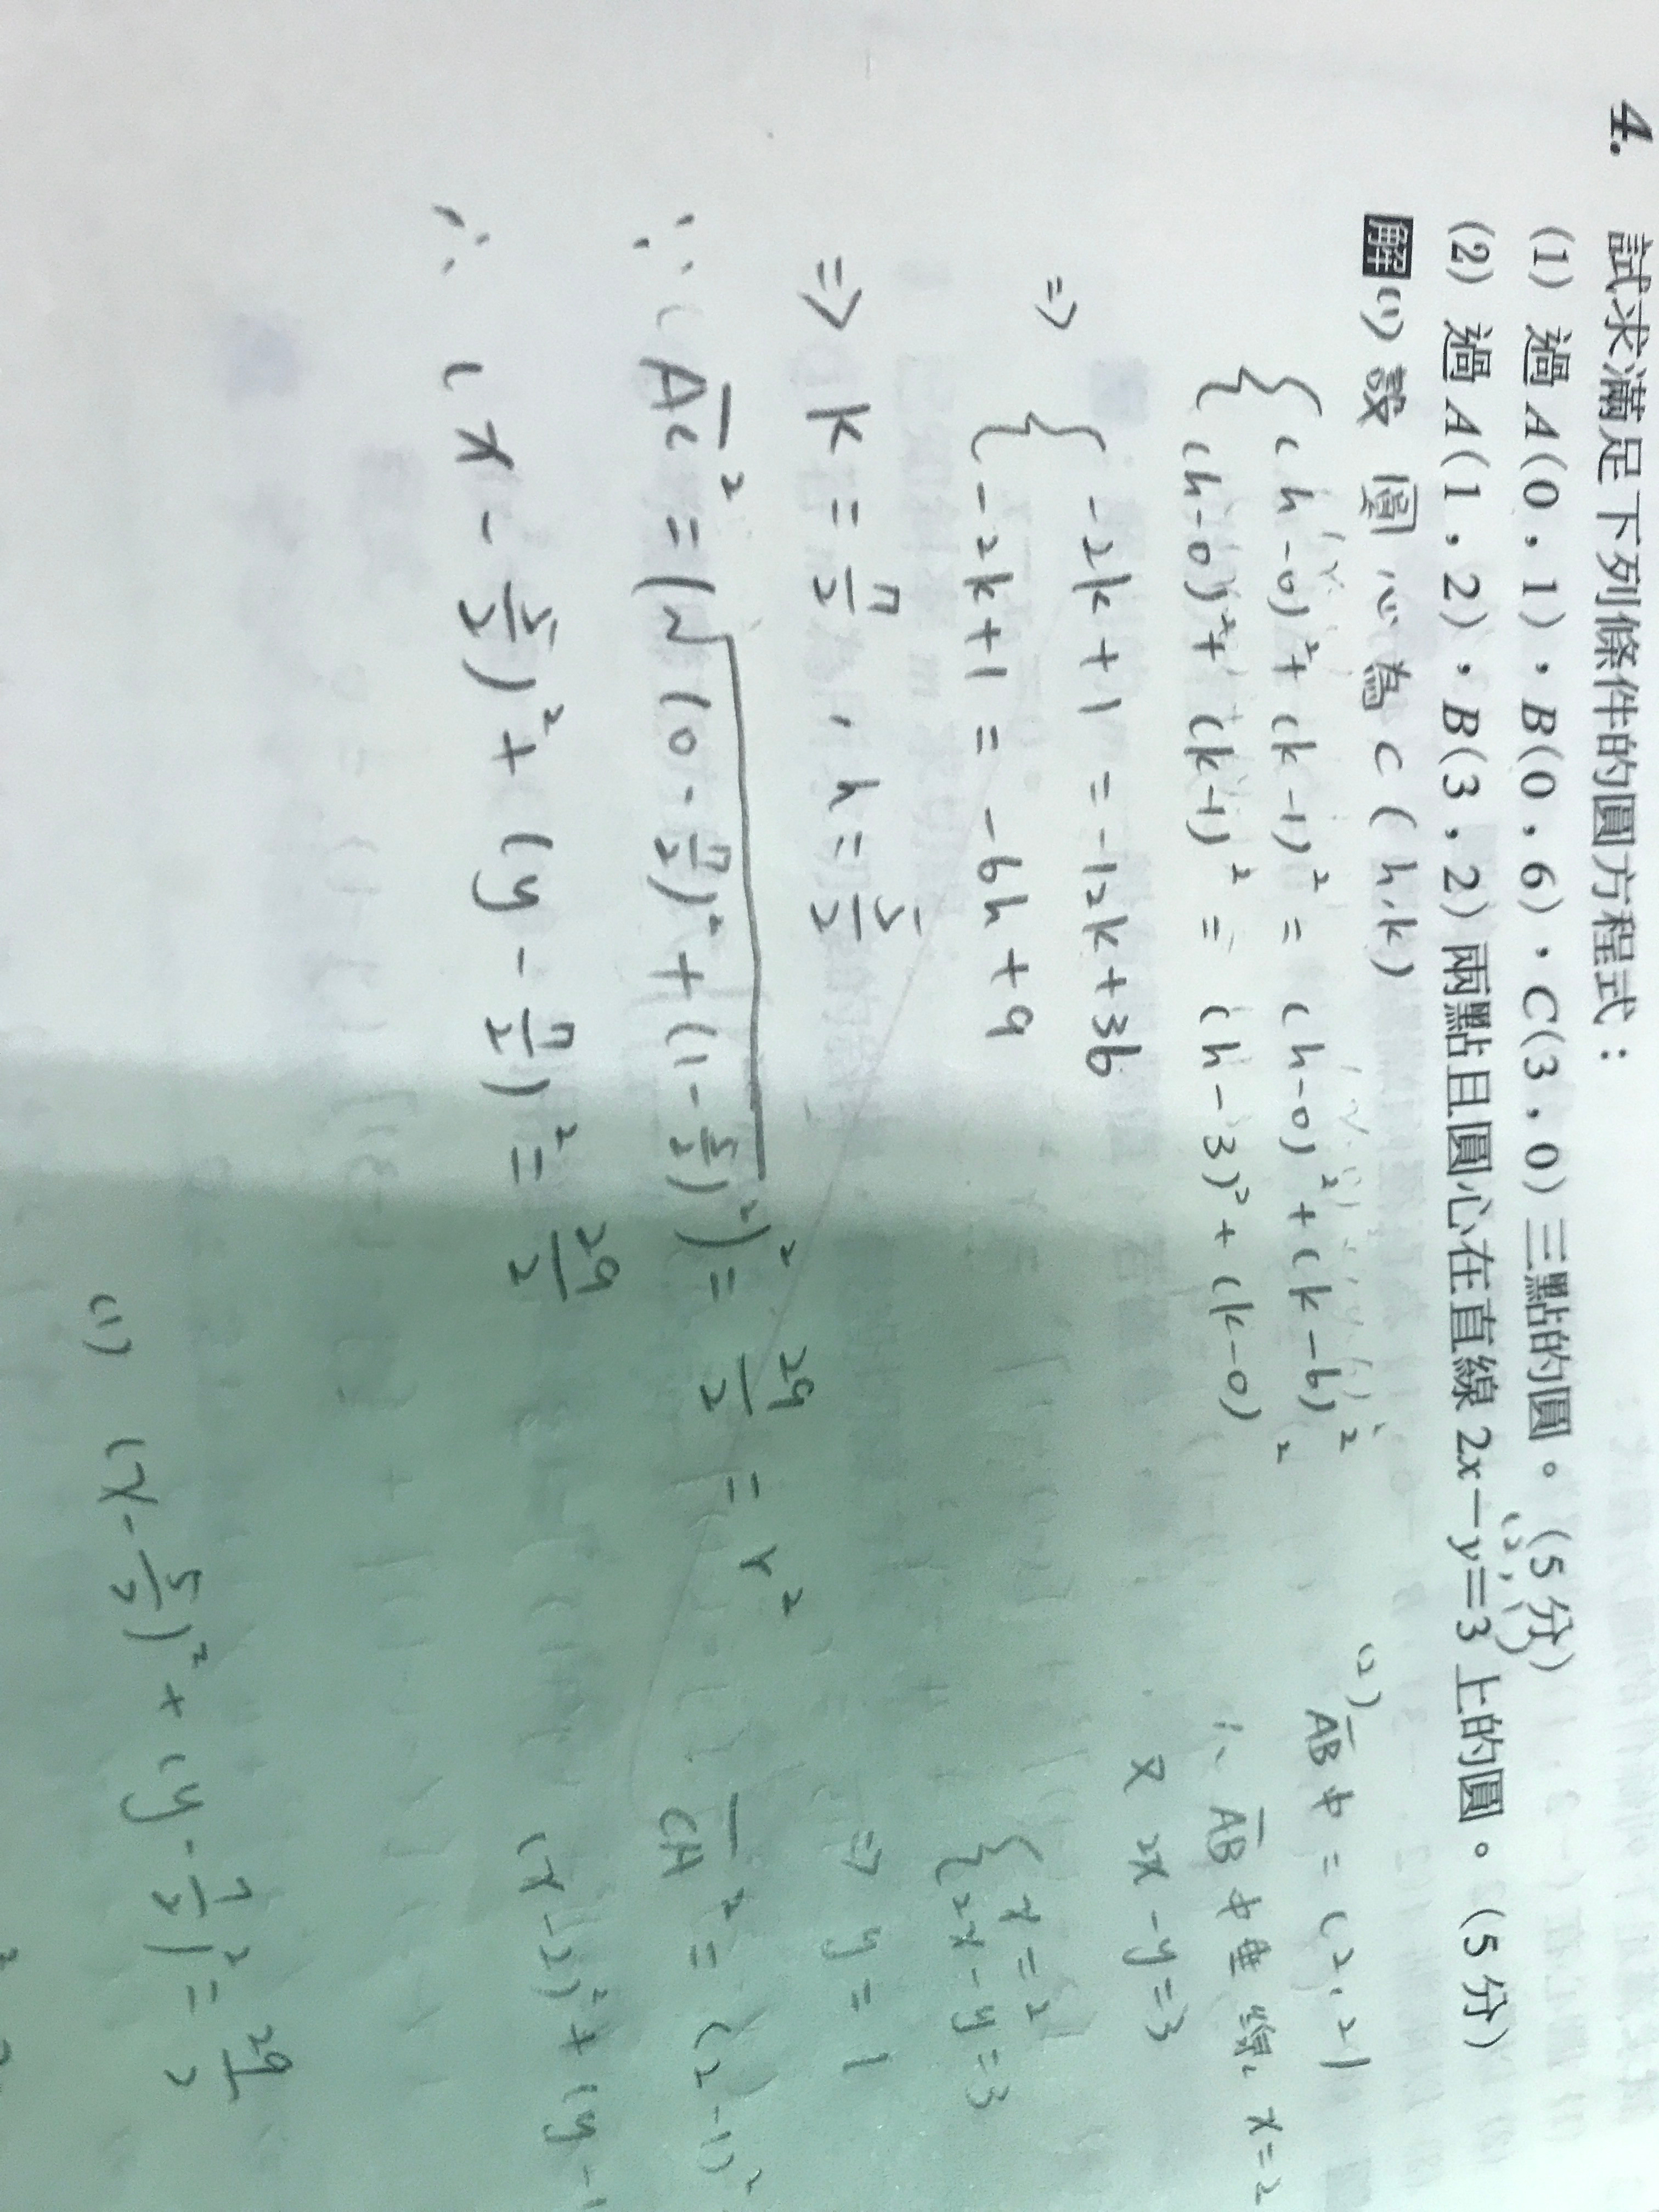 4. 試求滿足下列條件的圓方程式：
(1) 過 A(0，1)，B(0，6)，C(3，0) 三點的圓。(5分)
(2) 過 A(1，2)，B(3，2) 兩點且圓心在直線 2x－y＝3 上的圓。(5分)
(2,1)
解 (1) 設 圓心為 C(h,k)
{ (h-0)²+(k-1)² = (h-0)²+(k-6)²
(h-0)²+(k-1)² = (h-3)²+(k-0)²
⇒ { -2k+1 = -12k+36
-2k+1 = -6h+9
⇒ k = 7/2 , h = 5/2
∵ AC² = (√(0-7/2)²+(1-5/2)²)² = 29/2 = r²
∴ (x-5/2)²+(y-7/2)² = 29/2
(2) AB中 = (2,2)
∴ AB中垂線: x=2
又 2x-y=3
{ x=2
2x-y=3
⇒ y=1
CA² = (2-1)²
(x-2)²+(y-1
(1) (x-5/2)²+(y-7/2)² = 29/2